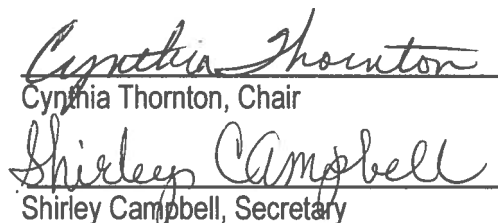 Cynthia Thornton
Cynthia Thornton, Chair
Shirley Campbell
Shirley Campbell, Secretary